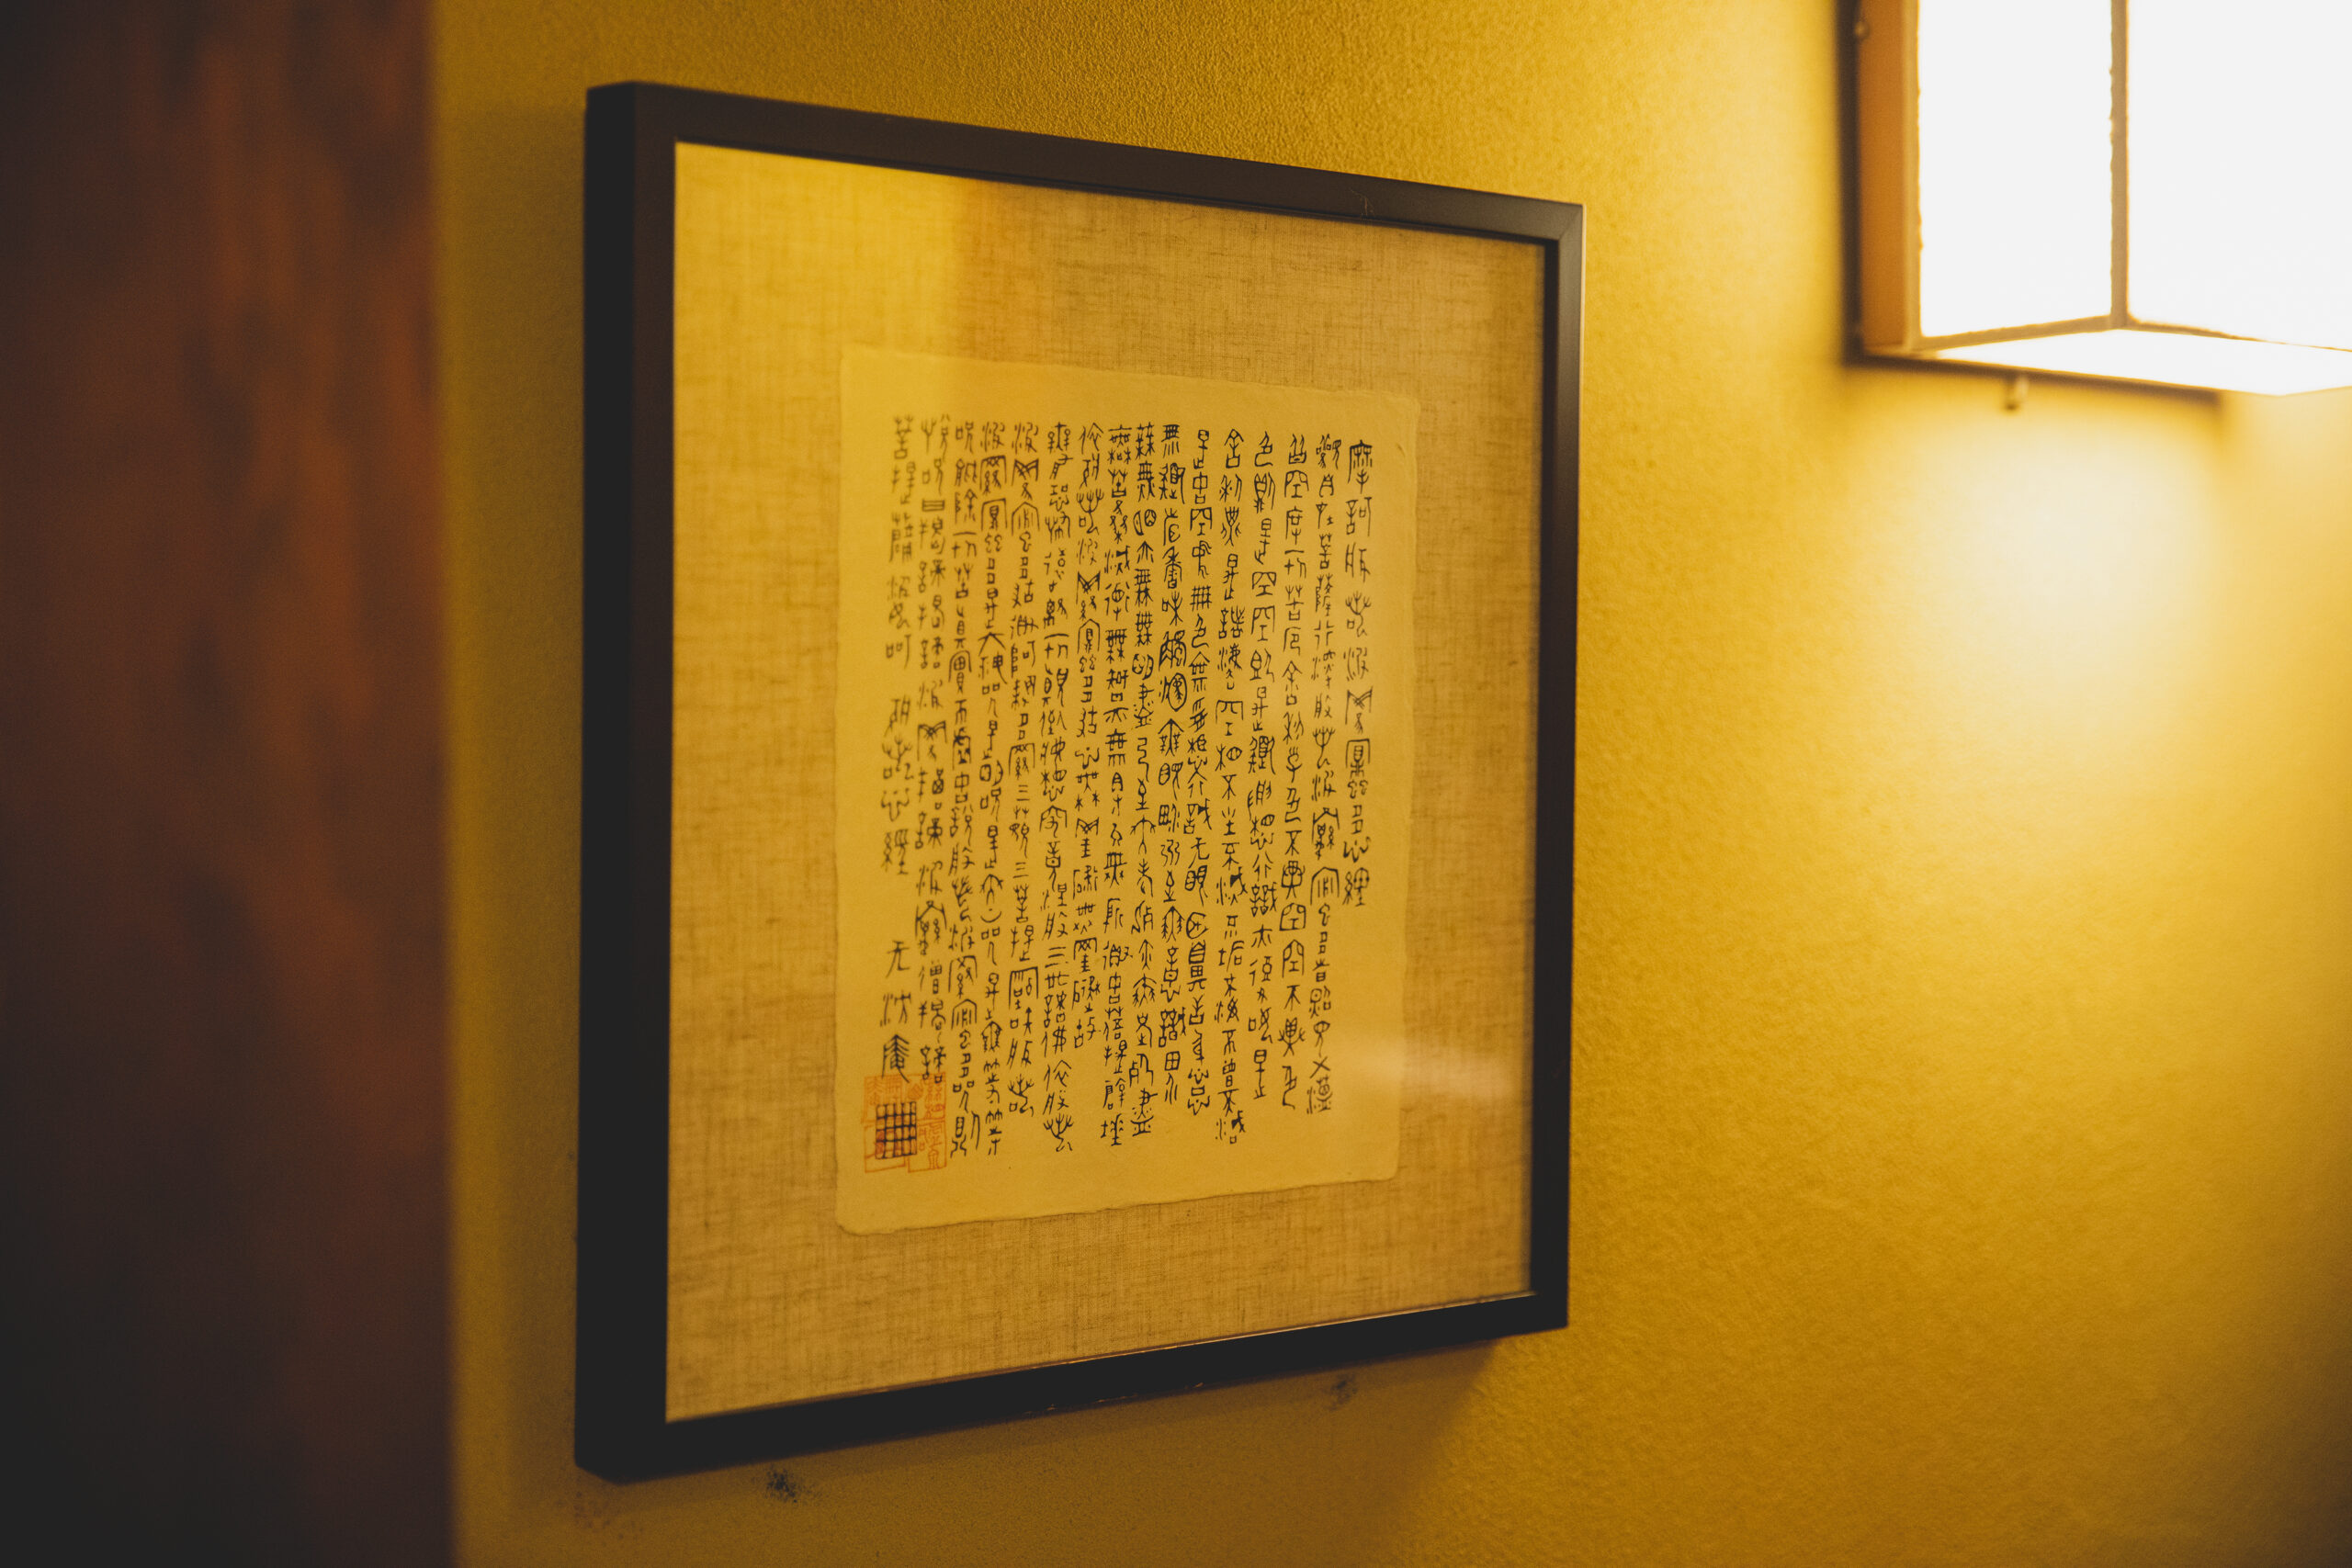 摩訶般若波羅蜜多心經
觀自在菩薩行深般若波羅蜜多時照見五蘊
皆空度一切苦厄舍利子色不異空空不異色
色即是空空即是色受想行識亦復如是
舍利子是諸法空相不生不滅不垢不淨不增不減
是故空中無色無受想行識無眼耳鼻舌身意
無色聲香味觸法無眼界乃至無意識界
無無明亦無無明盡乃至無老死亦無老死盡
無苦集滅道無智亦無得以無所得故菩提薩埵
依般若波羅蜜多故心無罣礙無罣礙故
無有恐怖遠離一切顛倒夢想究竟涅槃三世諸佛依般若
波羅蜜多故得阿耨多羅三藐三菩提故知般若
波羅蜜多是大神咒是大明咒是無上咒是無等等
咒能除一切苦真實不虛故說般若波羅蜜多咒即
說咒曰揭諦揭諦波羅揭諦波羅僧揭諦
菩提薩婆訶 般若心經 无 庵